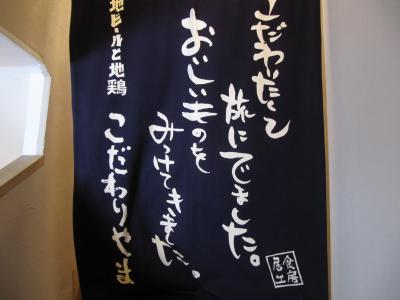 こだわりたくて
旅にでました。
おいしいものを
みつけてきました。
地ビールと地鶏
こだわりやま
食房